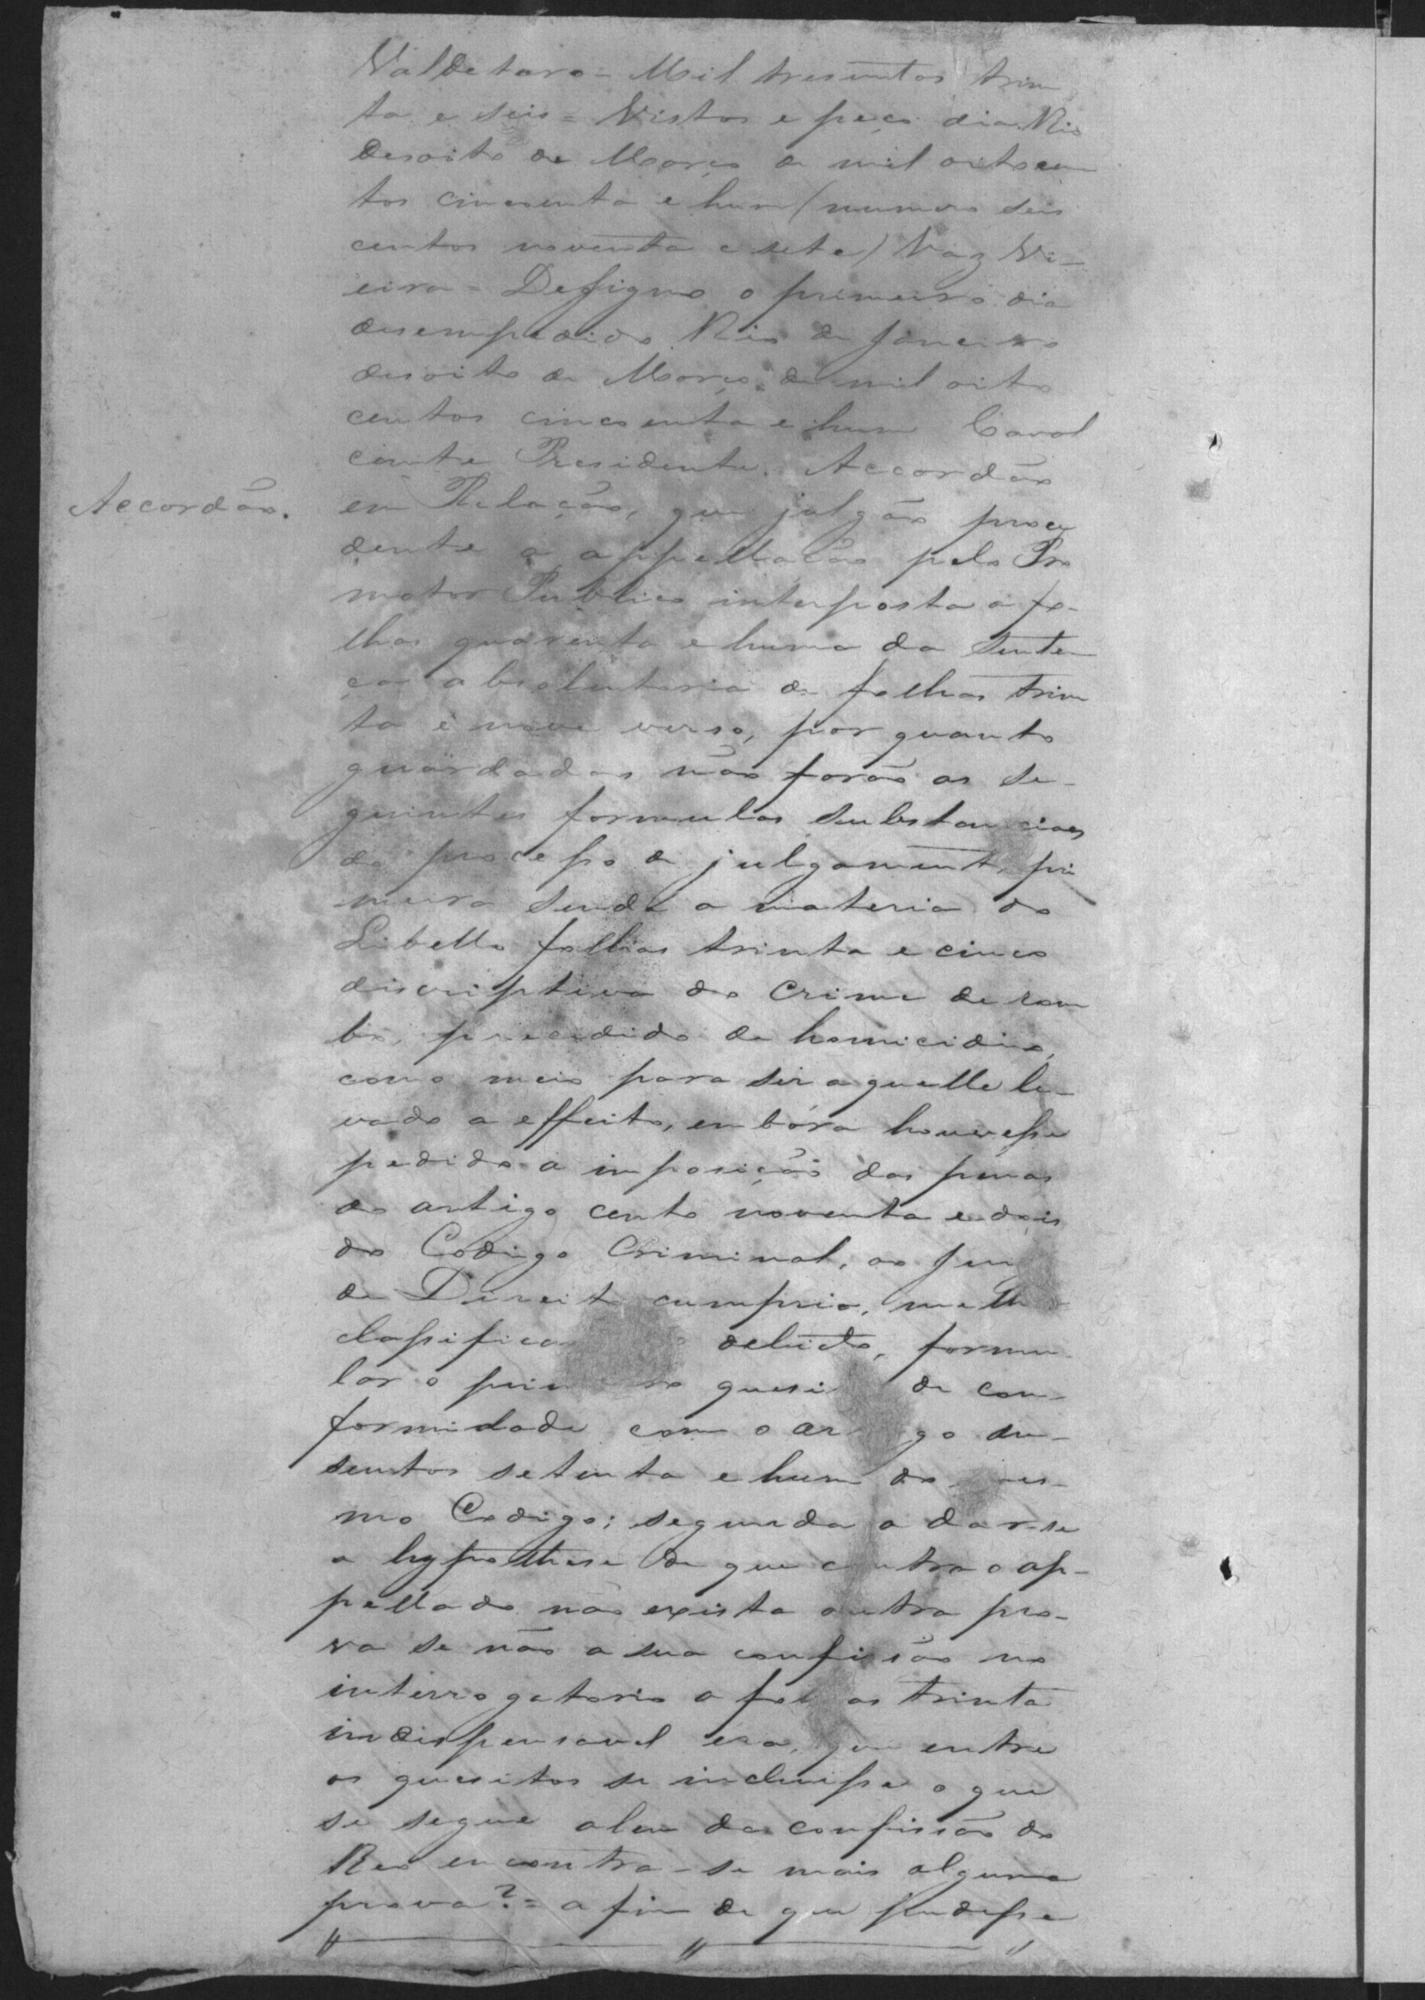 Valdetaro = Mil tresentos trin
ta e seis = Vistos e peço dia. Rio
desoito de Março de mil oitocen
tos cincoenta e hum (numero seis
centos noventa e sete) Vaz Vi-
eira = Designo o primeiro dia
desempedido. Rio de Janeiro
desoito de Março de mil oito
centos cincoenta e hum Caval
cante Presidente. Accordão
Accordão.
em Relação, que julgão proce
dente a appellacão pelo Pro
motor Publico interposta a fo-
lhas quarenta e huma da Senten
ça absolutoria de folhas trin
ta e nove verso, por quanto
guardadas não forão as se-
guintes formulas substanciaes
do processo de julgamento, pri
meira sendo a materia do
Libello folhas trinta e cinco
discriptiva do crime de rou
bo, precedido de homicidio,
como meio para ser aquelle le-
vado a effeito, embora houvesse
pedido a imposição das penas
do artigo cento noventa e dois
do Codigo Criminal, ao Jui
de Direito cumpria, melho
classifica o delicto, formu
lar o primeiro quesi de con-
formidade com o ar go du-
sentos setenta e hum do mes-
mo Codigo; segunda a dar-se
a hypothese de que contra o ap-
pellado não exista outra pro-
va se não a sua confissão no
interrogatorio a folhas trinta
indispensavel era, que entre
os quesitos se incluisse o que
se segue alem da confissão do
Reo encontra-se mais alguma
prova? = a fim de que pudesse